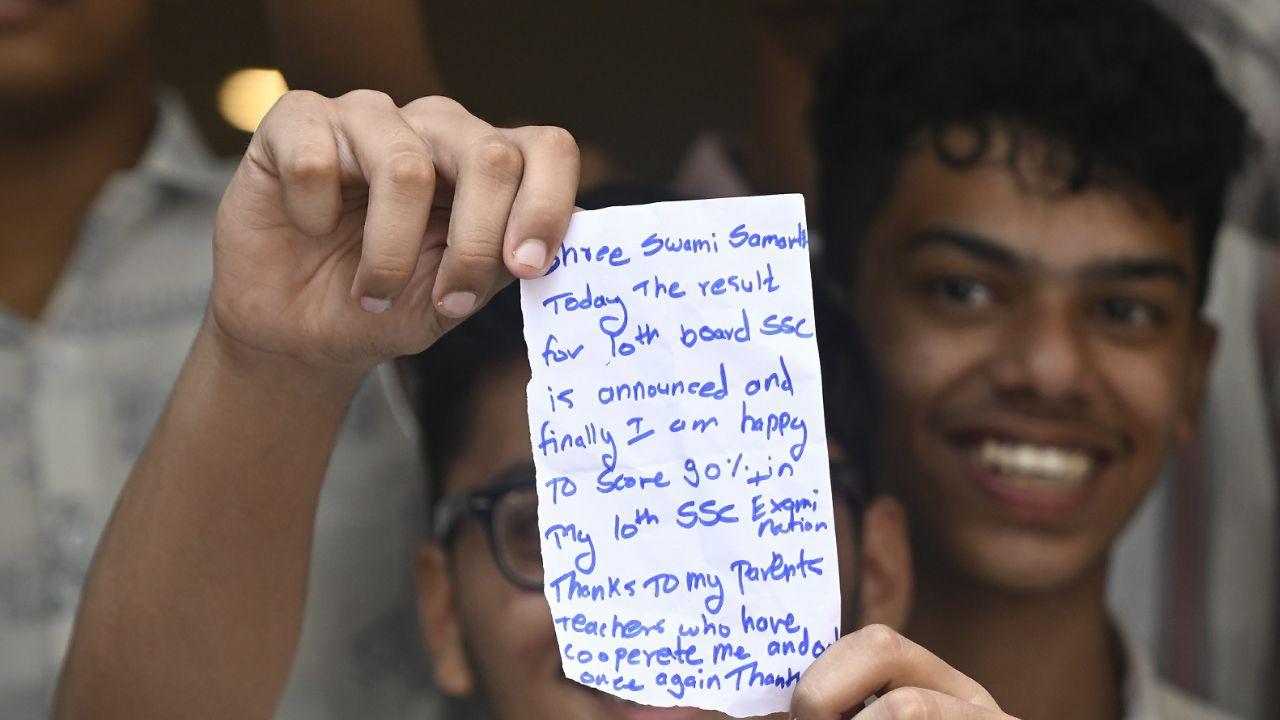 Shree Swami Samarth
Today The result
for 10th board SSC
is announced and
finally I am happy
To Score 90%+in
My 10th SSC Exami
nation
Thanks To my Parents
Teachers who have
cooperate me and
once again Thank